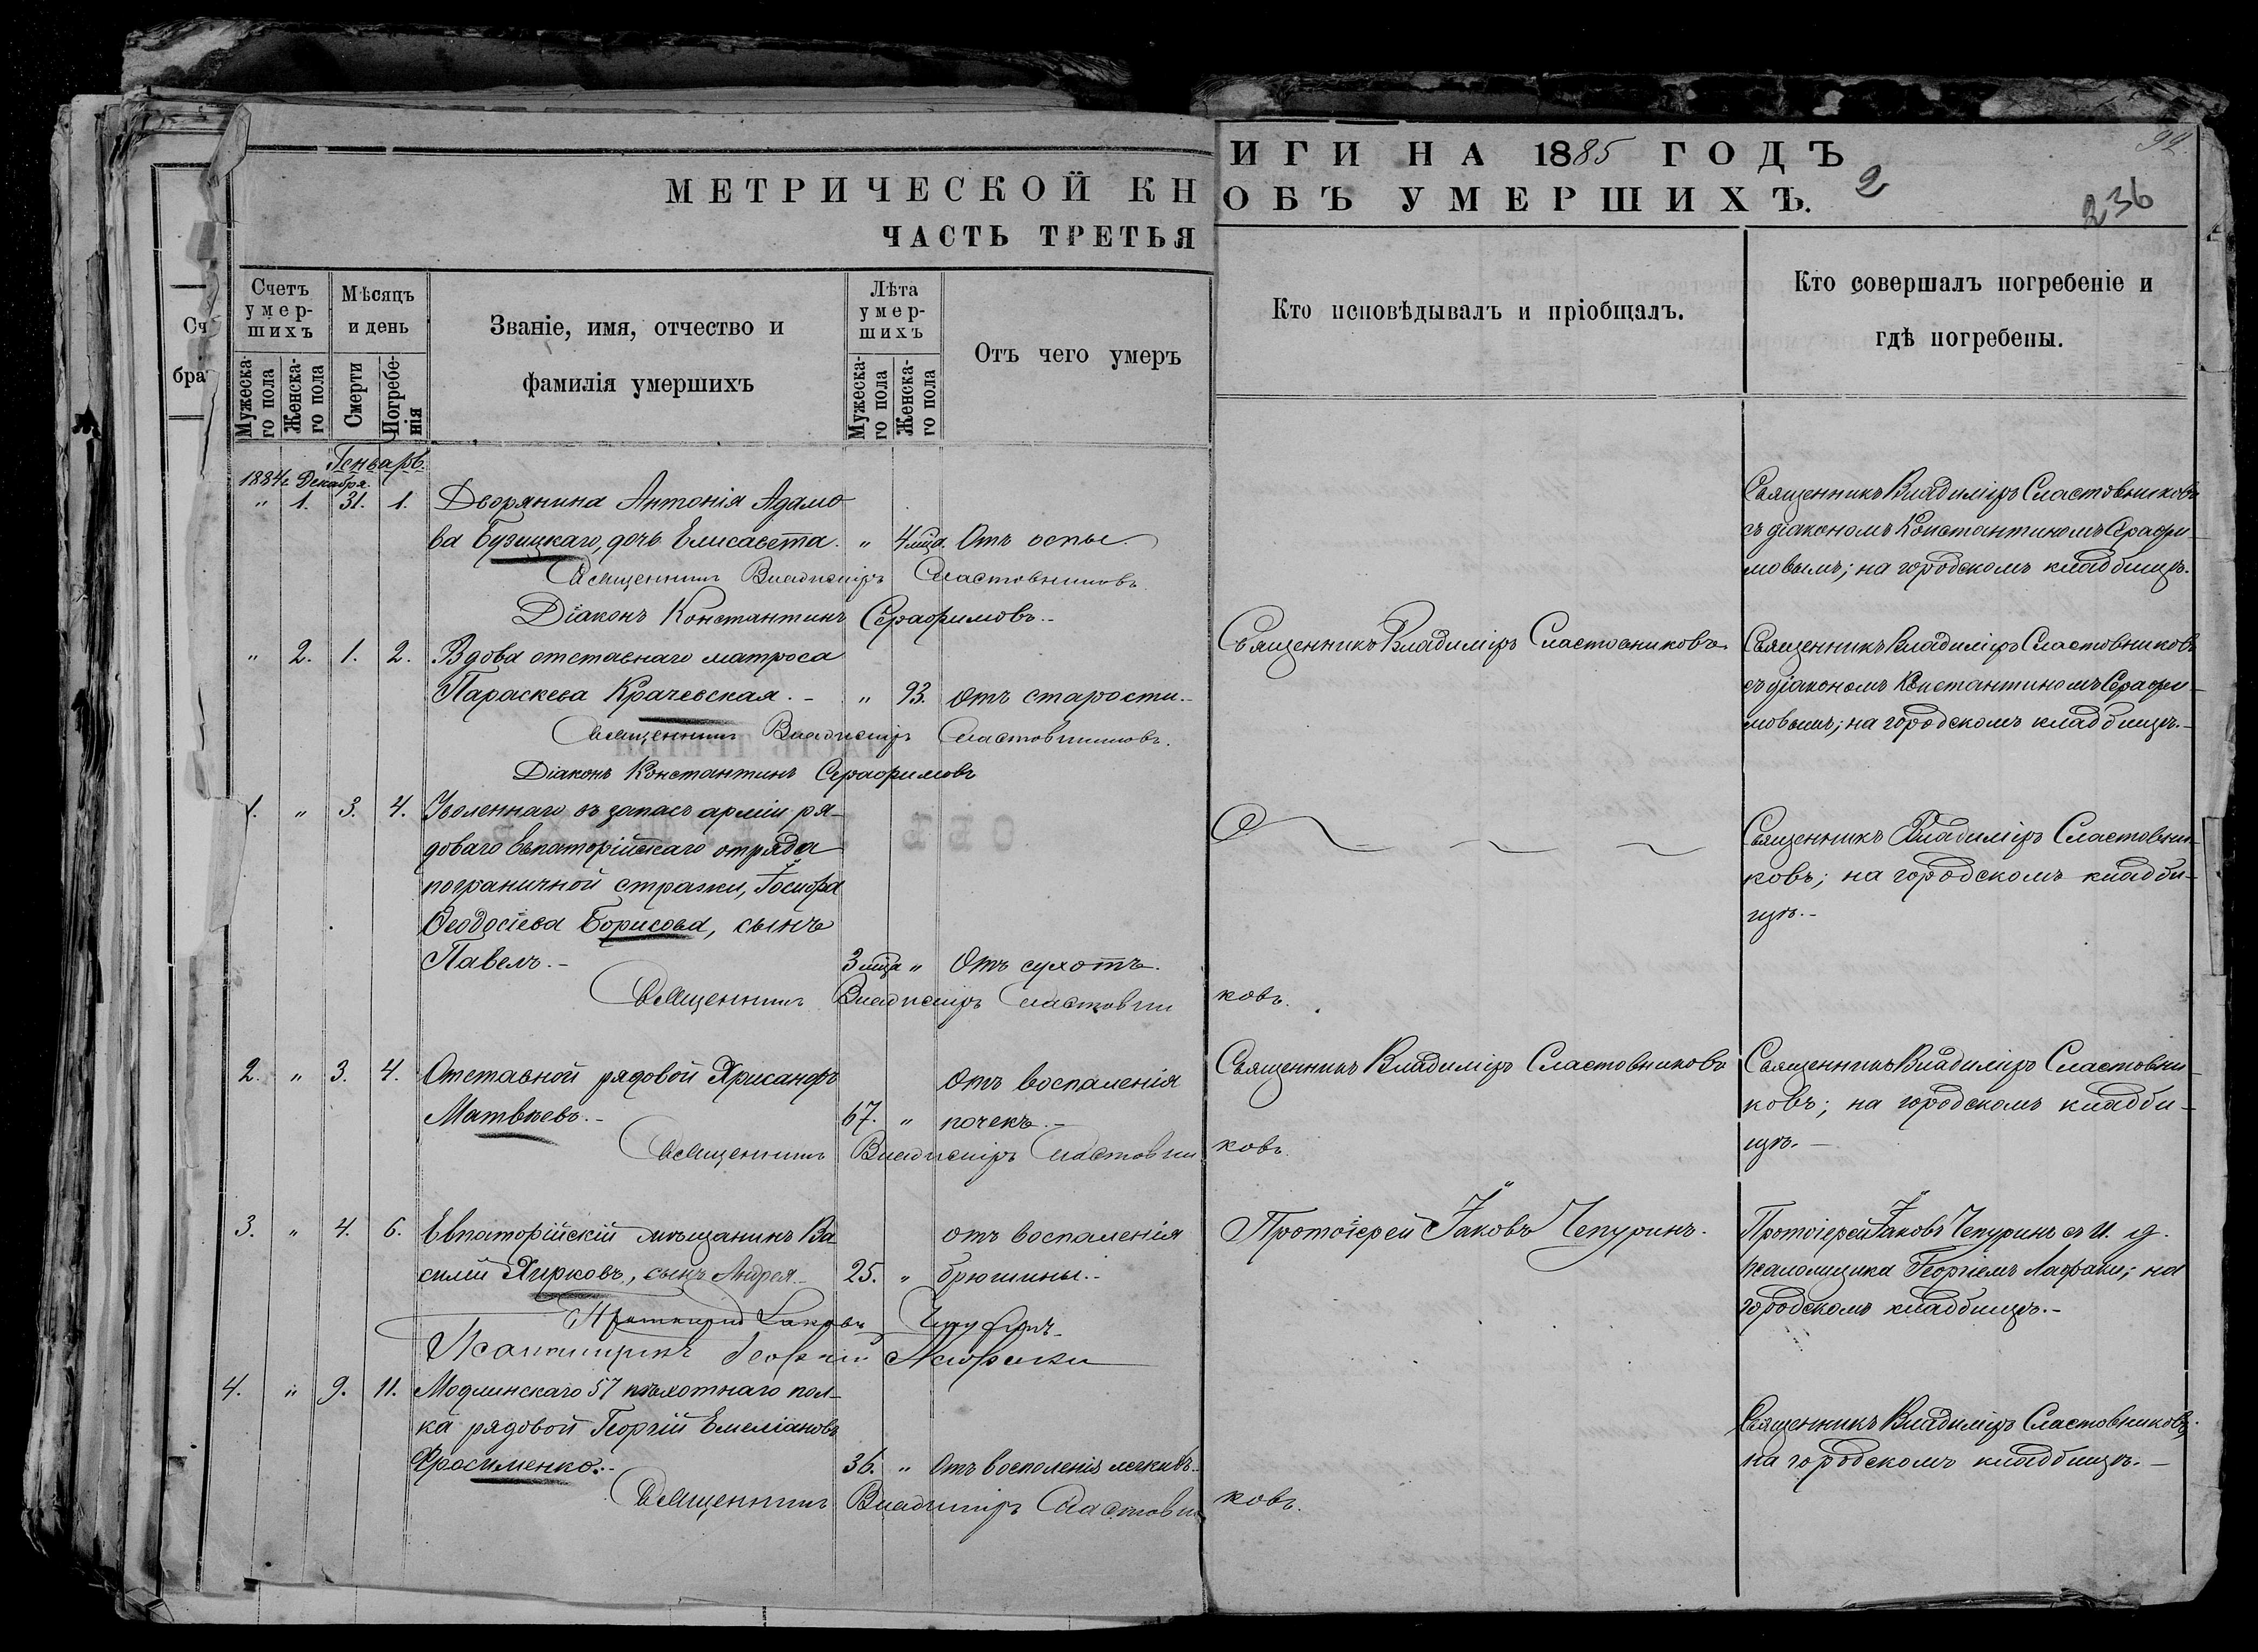 МЕТРИЧЕСКОЙ КНИГИ НА 1885 ГОДЪ
ЧАСТЬ ТРЕТЬЯ ОБЪ УМЕРШИХЪ.
2
92
236
Счетъ умер-шихъ
Мѣсяцъ и день
Званіе, имя, отчество и
фамилія умершихъ
Лѣта умер-шихъ
Отъ чего умеръ
Кто исповѣдывалъ и пріобщалъ.
Кто совершалъ погребеніе и
гдѣ погребены.
Мужеска-го пола
Женска-го пола
Смерти
Погребе-нія
Мужеска-го пола
Женска-го пола
Сч
бра
Генварь
1884г. Декабря.
" 1. 31. 1. Дворянина Антонія Адамо
ва Бузицкаго, дочь Елисавета. " 4 мца. Отъ оспы.
Священникъ Владиміръ Сластовниковъ
Діаконъ Константинъ Серафимовъ.-
Священникъ Владиміръ Сластовниковъ
съ діакономъ Константиномъ Серафи-
мовымъ; на городскомъ кладбищѣ.
" 2. 1. 2. Вдова отставнаго матроса
Параскева Крачевская.- " 93. отъ старости.-
Священникъ Владиміръ Сластовниковъ.
Діаконъ Константинъ Серафимовъ
Священникъ Владиміръ Сластовниковъ.
Священникъ Владиміръ Сластовниковъ
съ діакономъ Константиномъ Серафи-
мовымъ; на городскомъ кладбищѣ.-
1. " 3. 4. Уволеннаго въ запасъ арміи ря-
доваго Евпаторійскаго отряда
пограничной стражи, Іосифа
Ѳеодосіева Борисова, сынъ
Павелъ.- 3 мца " Отъ сухотъ.
Священникъ Владиміръ Сластовниковъ.
Священникъ Владиміръ Сластовни-
ковъ; на городскомъ кладби-
щѣ.-
2. " 3. 4. Отставной рядовой Хрисанфъ
Матвѣевъ.- 67. " Отъ воспаленія
почекъ.-
Священникъ Владиміръ Сластовниковъ.
Священникъ Владиміръ Сластовниковъ
Священникъ Владиміръ Сластовни-
ковъ; на городскомъ кладби-
щѣ.-
3. " 4. 6. Евпаторійскій мѣщанинъ Ва
силій Хирковъ, сынъ Андрея.- 25. " отъ воспаленія
брюшины.-
Протоіерей Іаковъ Чепуринъ
Псаломщикъ Георгій
Протоіерей Іаковъ Чепуринъ.
Протоіерей Іаковъ Чепуринъ съ И. д.
псаломщика Георгіемъ Лафаки; на
городскомъ кладбищѣ.-
4. " 9. 11. Модлинскаго 57 пѣхотнаго пол-
ка рядовой Георгій Емеліановъ
36. " Отъ воспаленія легкихъ.-
Священникъ Владиміръ Сластовниковъ.
Священникъ Владиміръ Сластовниковъ;
на городскомъ кладбищѣ.-